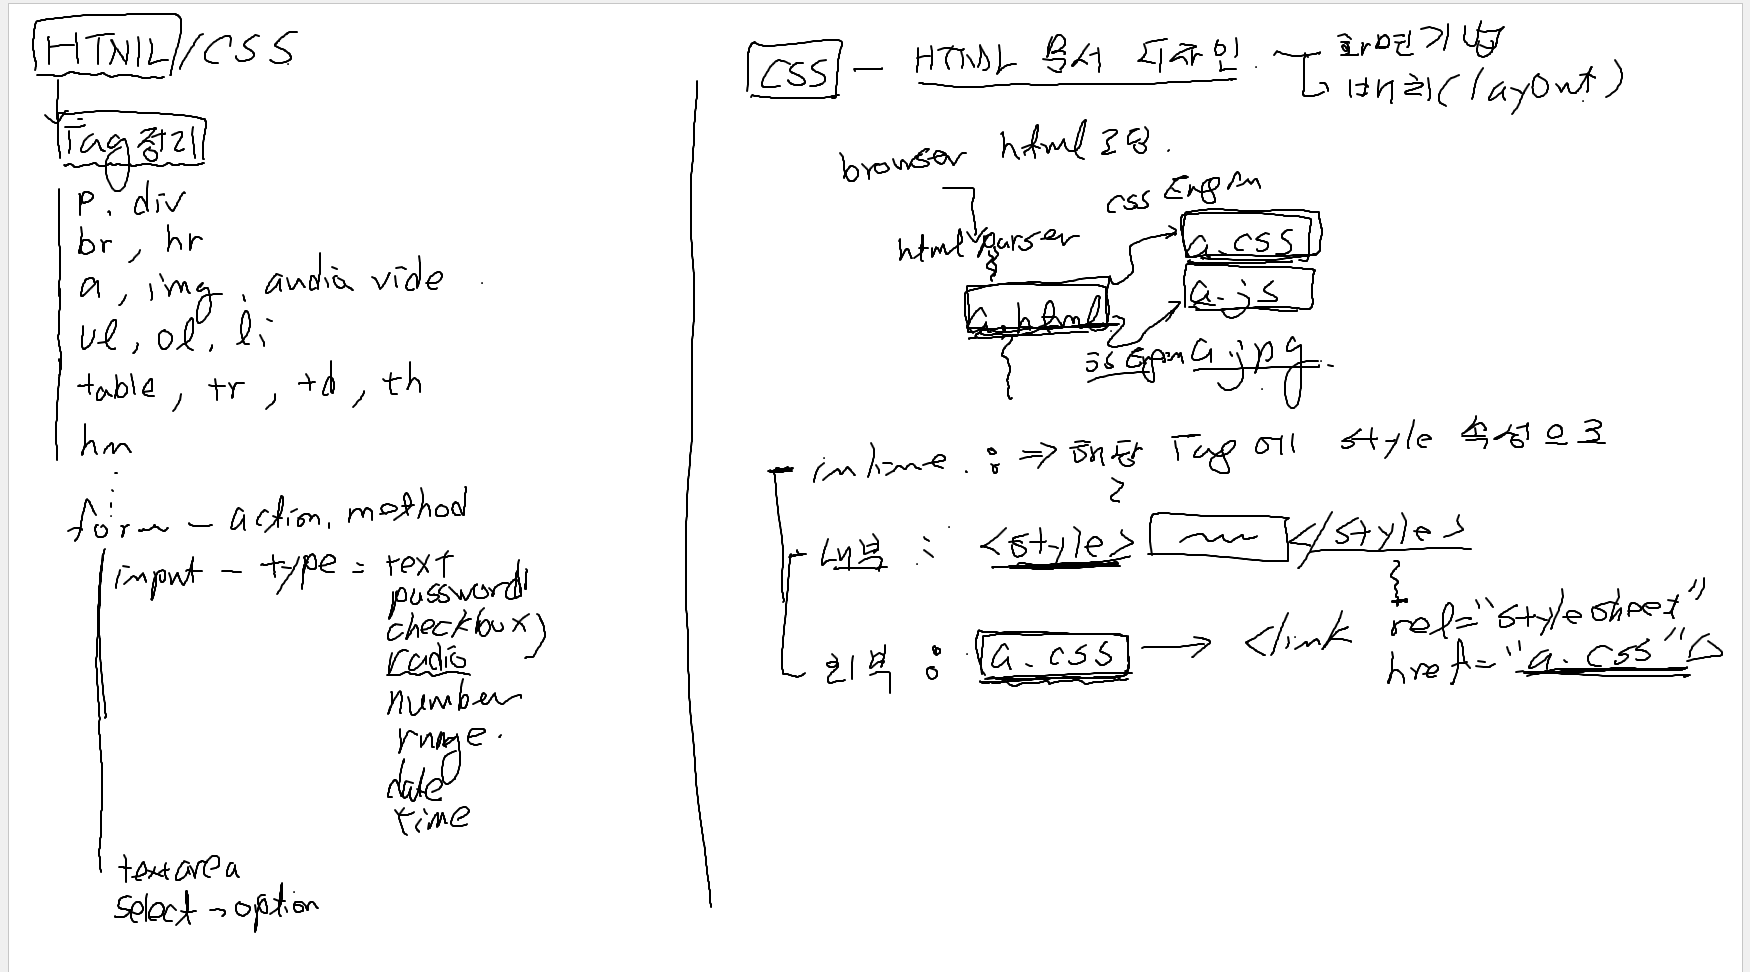 HTML/CSS
Tag 정리
p, div
br, hr
a, img, audio vide
ul, ol, li
table, tr, td, th
hn
form - action, method
input - type = text
password
checkbox)
radio
number
range.
date
time
textarea
select → option
CSS - HTML 문서 디자인
화면기능
배치(layout)
browser html 로딩.
css Engin
html parser
a.css
a.js
a.html
js Engin a.jpg.
inline : => 해당 Tag에 style 속성으로
내부 : <style> </style>
외부 : a.css → <link rel="stylesheet"
href="a.css">